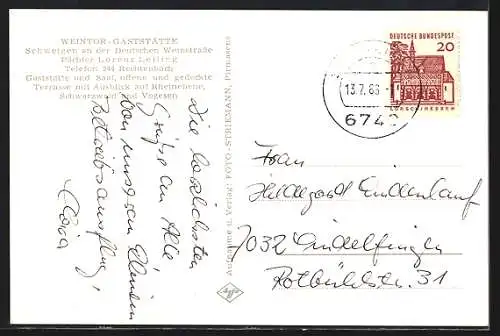 WEINTOR-GASTSTÄTTE
Schweigen an der Deutschen Weinstraße
Pächter Lorenz Leiling
Telefon 244 Rechtenbach
Gaststätte und Saal, offene und gedeckte
Terrasse mit Ausblick auf Rheinebene,
Schwarzwald und Vogesen
Die herzlichsten
Grüße an Alle
von unserem kleinen
Betriebsausflug,
Aufnahme u. Verlag: FOTO-STRIEMANN, Pirmasens
Agfa
DEUTSCHE BUNDESPOST
20
LORSCH/HESSEN
13.7.66
674
Frau
Hildegard Lindenlauf
7032 Sindelfingen
Rotbühlstr. 31